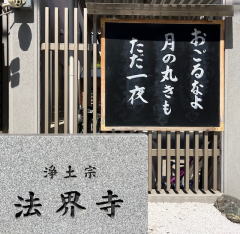 おごるなよ
月の丸きも
ただ一夜
浄土宗
法界寺